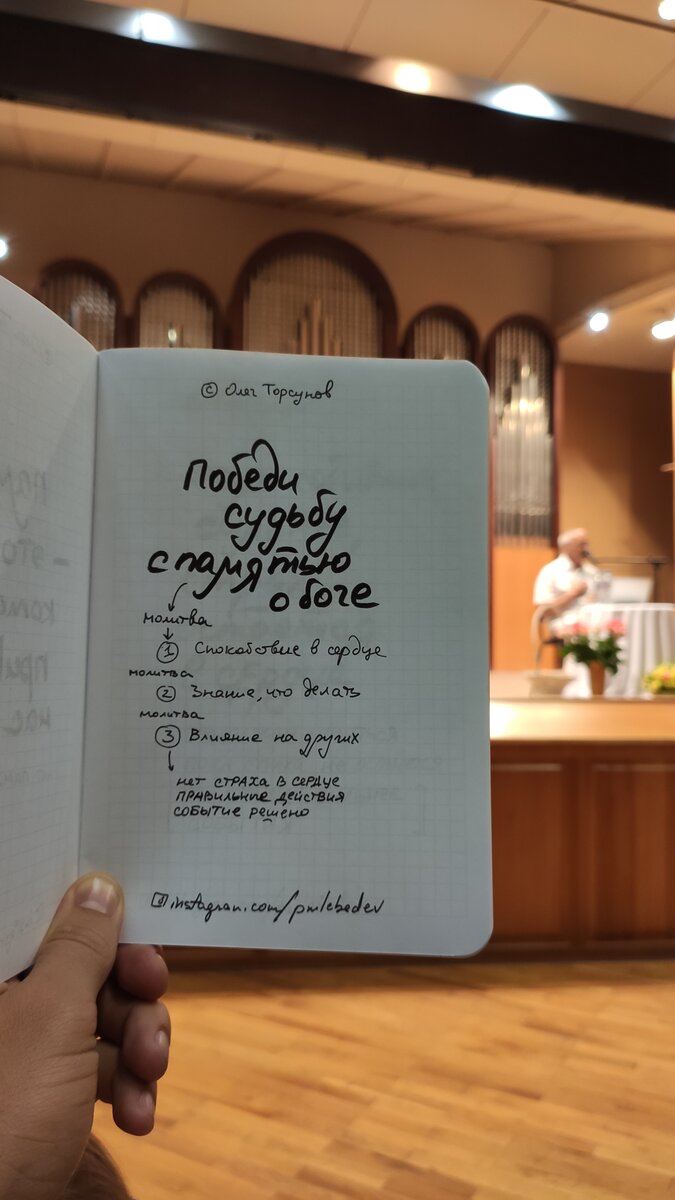 © Олег Торсунов
Победи
судьбу
с памятью
о боге
молитва
1 Спокойствие в сердце
молитва
2 Знание, что делать
молитва
3 Влияние на других
нет страха в сердце
правильные действия
событие решено
instagram.com/pmlebedev